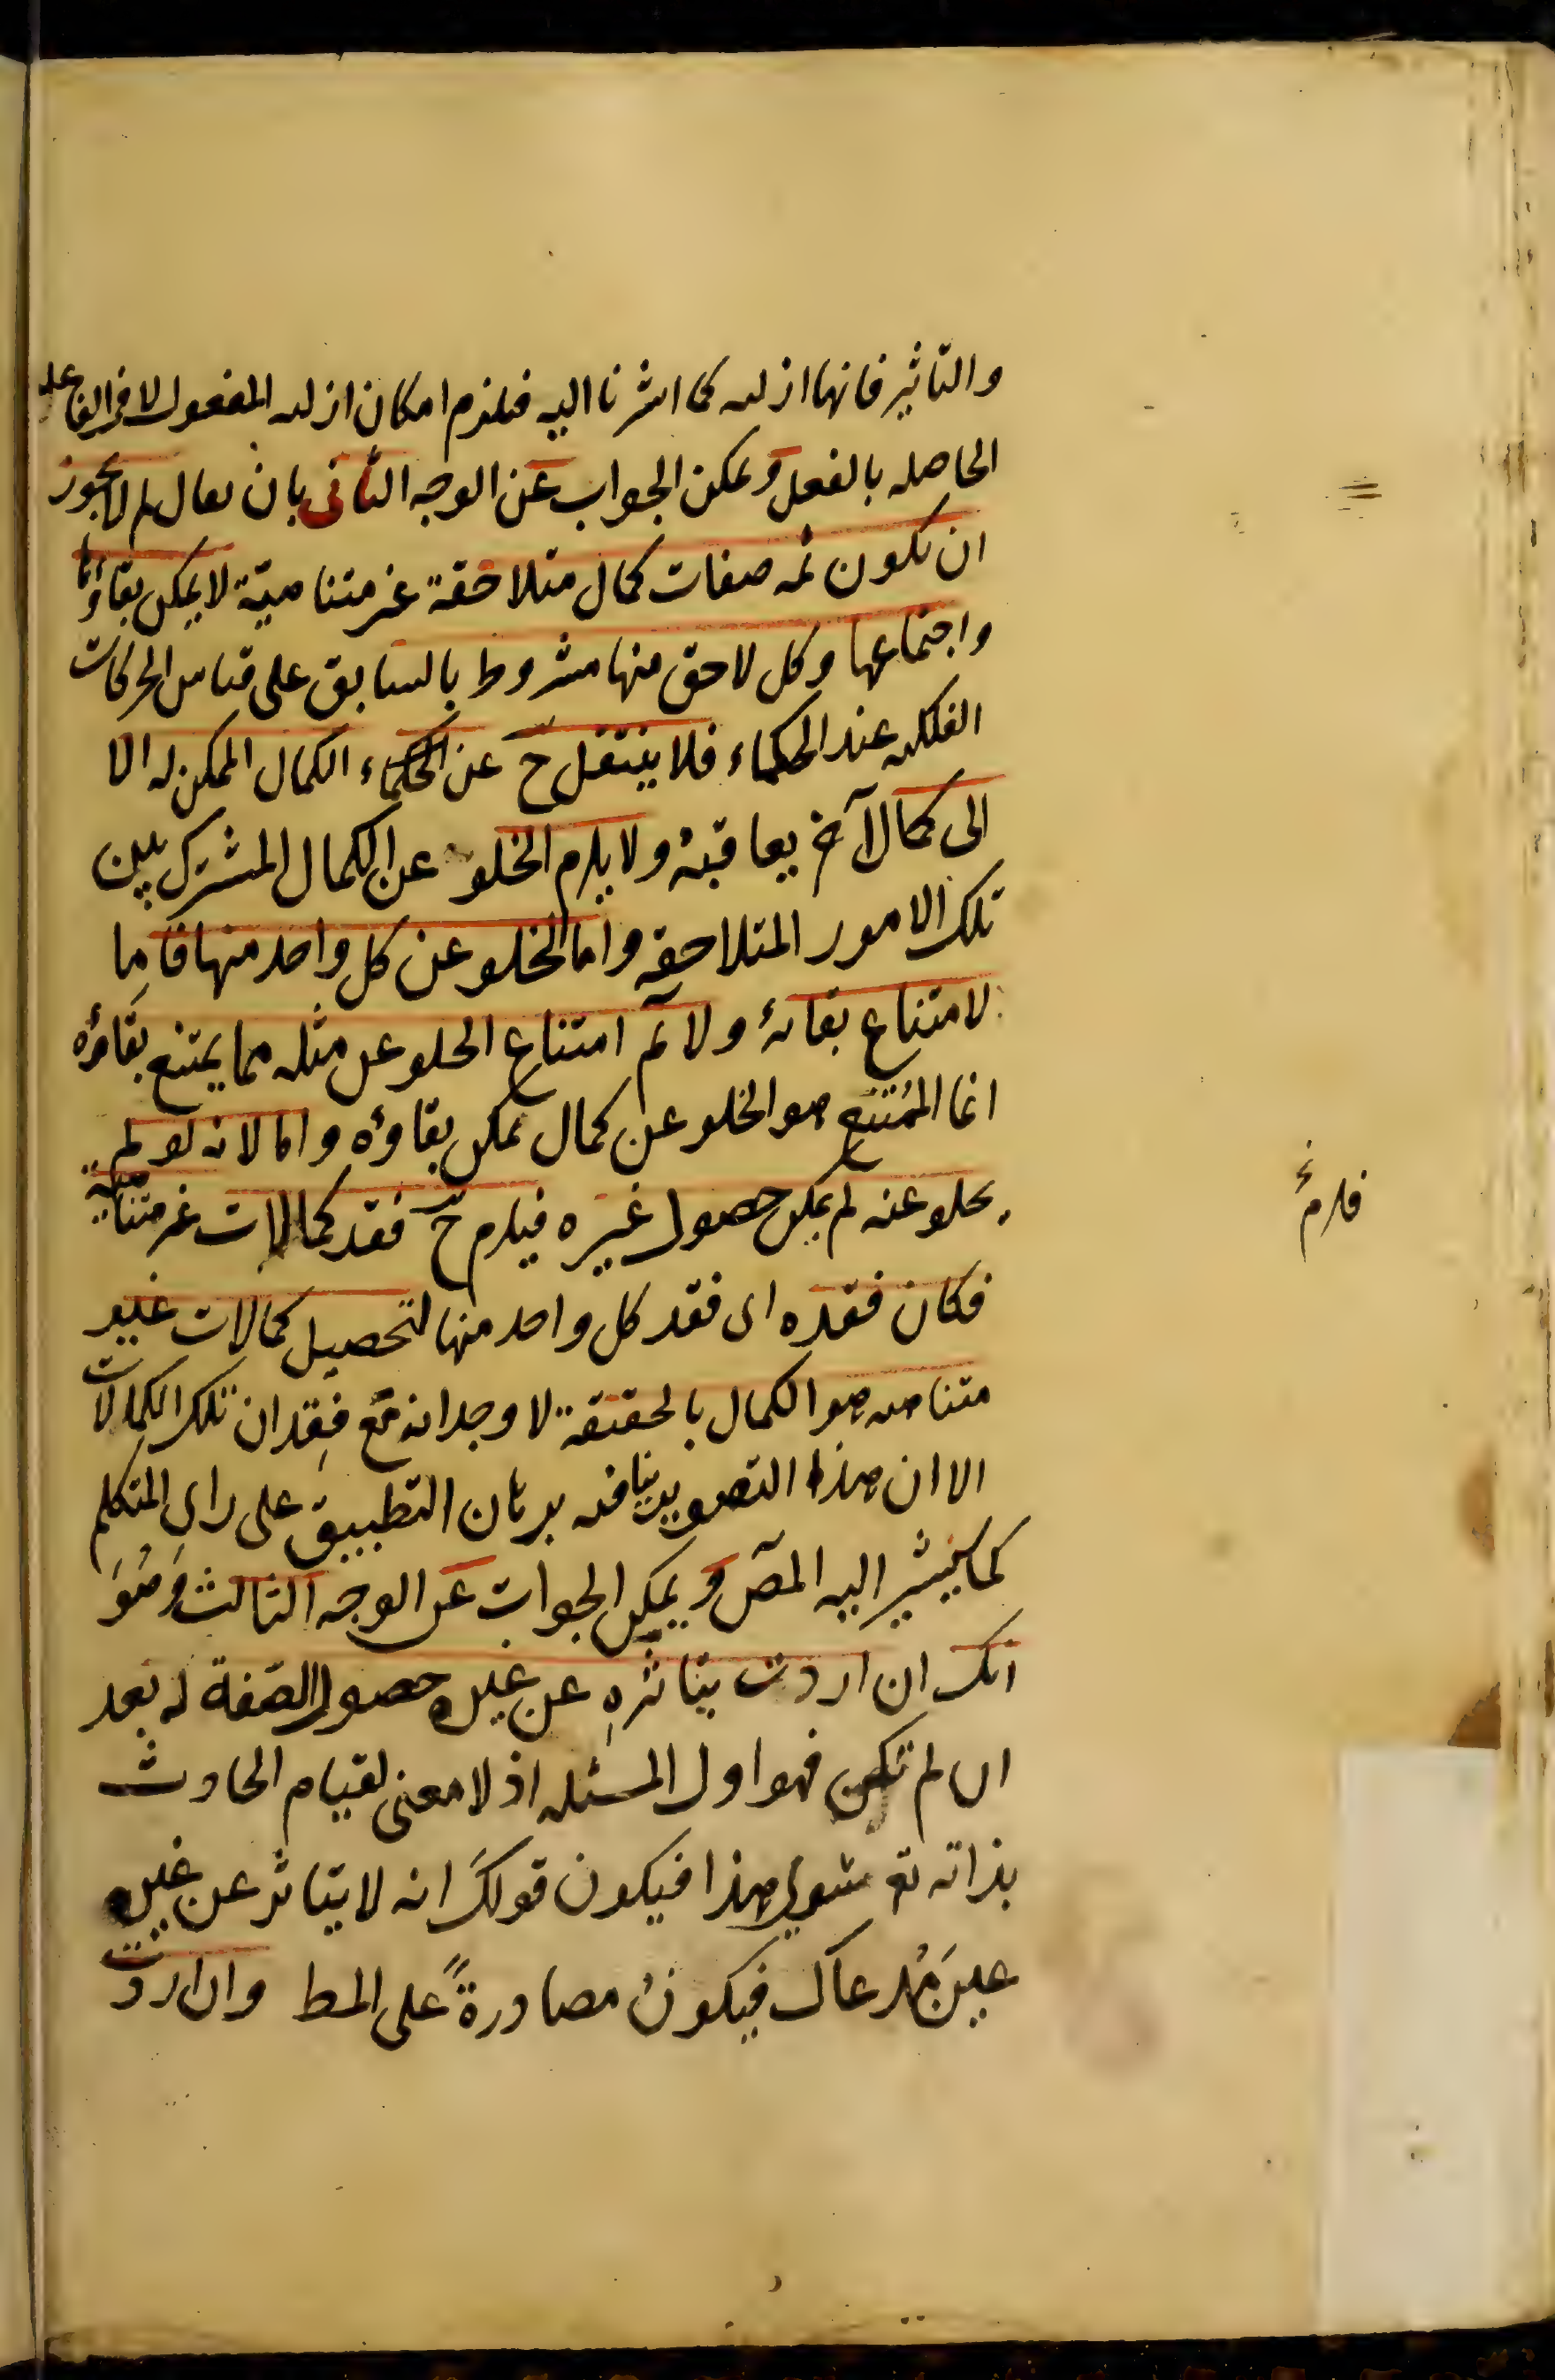 والتاثير فانها ازليه كما اشرنا اليه فيلزم امكان ازليه المفعول لا في الفاعليه
الحاصله بالفعل ويمكن الجواب عن الوجه الثانى بان يقال لم لا يجوز
ان تكون ثمه صفات كمال متلاحقة غير متناهية لا يمكن بقاؤها
واجتماعها وكل لاحق منها مشروط بالسابق على قياس الحركات
الفلكيه عند الحكماء فلا ينتقل ح عن الحكماء الكمال الممكن له الا
الى كمال آخر يعاقبهُ ولا يلزم الخلو عن الكمال المشترك بين
تلك الامور المتلاحقه واما الخلو عن كل واحد منها فاما
لامتناع بقائهُ ولا نم امتناع الخلو عن مثله مما يمتنع بقاؤه
انما الممتنع هو الخلو عن كمال يمكن بقاؤه واما لانه لو لم
يخلو عنه لم يمكن حصول غيره فيلزم ح فقد كمالات غير متناهية
فكان فقده اى فقد كل واحد منها لتحصيل كمالات غير
متناهيه هو الكمال بالحقيقة لا وجدانه مع فقدان تلك الكمالات
الا ان هذا التصوير ينافيه برهان التطبيق على راى المتكلم
كما سيشير اليه المص ويمكن الجواب عن الوجه الثالث وهُوَ
انك ان اردت بتاثره عن غيره حصول الصفة له بعد
ان لم تكن فهو اول المسئله اذ لا معنى لقيام الحادث
بذاته تع سوى هذا فيكون قولكَ انه لا يتاثر عن غيره
عينَ مُدعاك فيكونُ مصادرةً على المط وان اردت